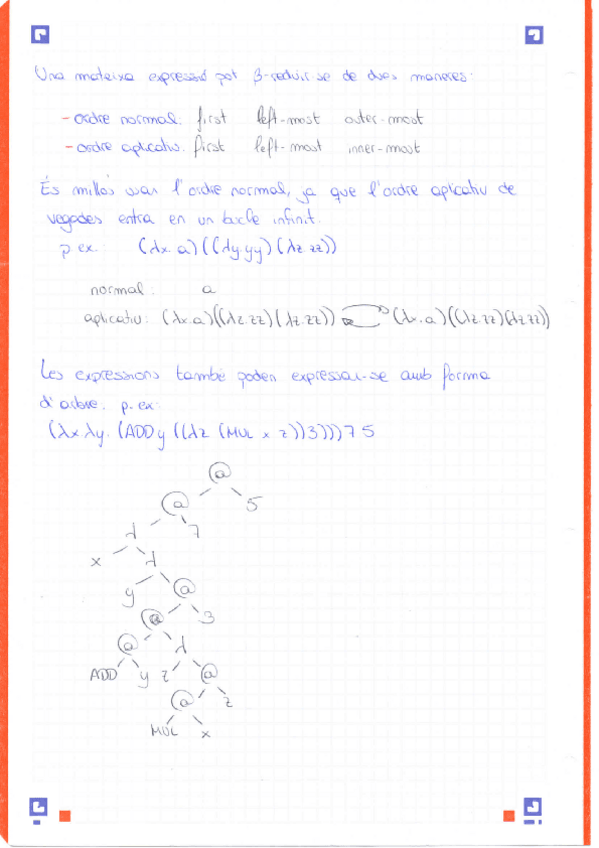 Una mateixa expressió pot β-reduir-se de dues maneres:
- ordre normal: first left-most outer-most
- ordre aplicatiu: first left-most inner-most
És millor usar l'ordre normal, ja que l'ordre aplicatiu de
vegades entra en un bucle infinit.
p.ex.: (λx.a)((λy.yy)(λz.zz))
normal: a
aplicatiu: (λx.a)((λz.zz)(λz.zz)) (λx.a)((λz.zz)(λz.zz))
Les expressions també poden expressar-se amb forma
d'arbre. p.ex:
(λx.λy.(ADD y ((λz (MUL x z))3)))7 5
@
@ 5
λ 7
x λ
y @
@ 3
@ λ
ADD y z @
@ z
MUL x